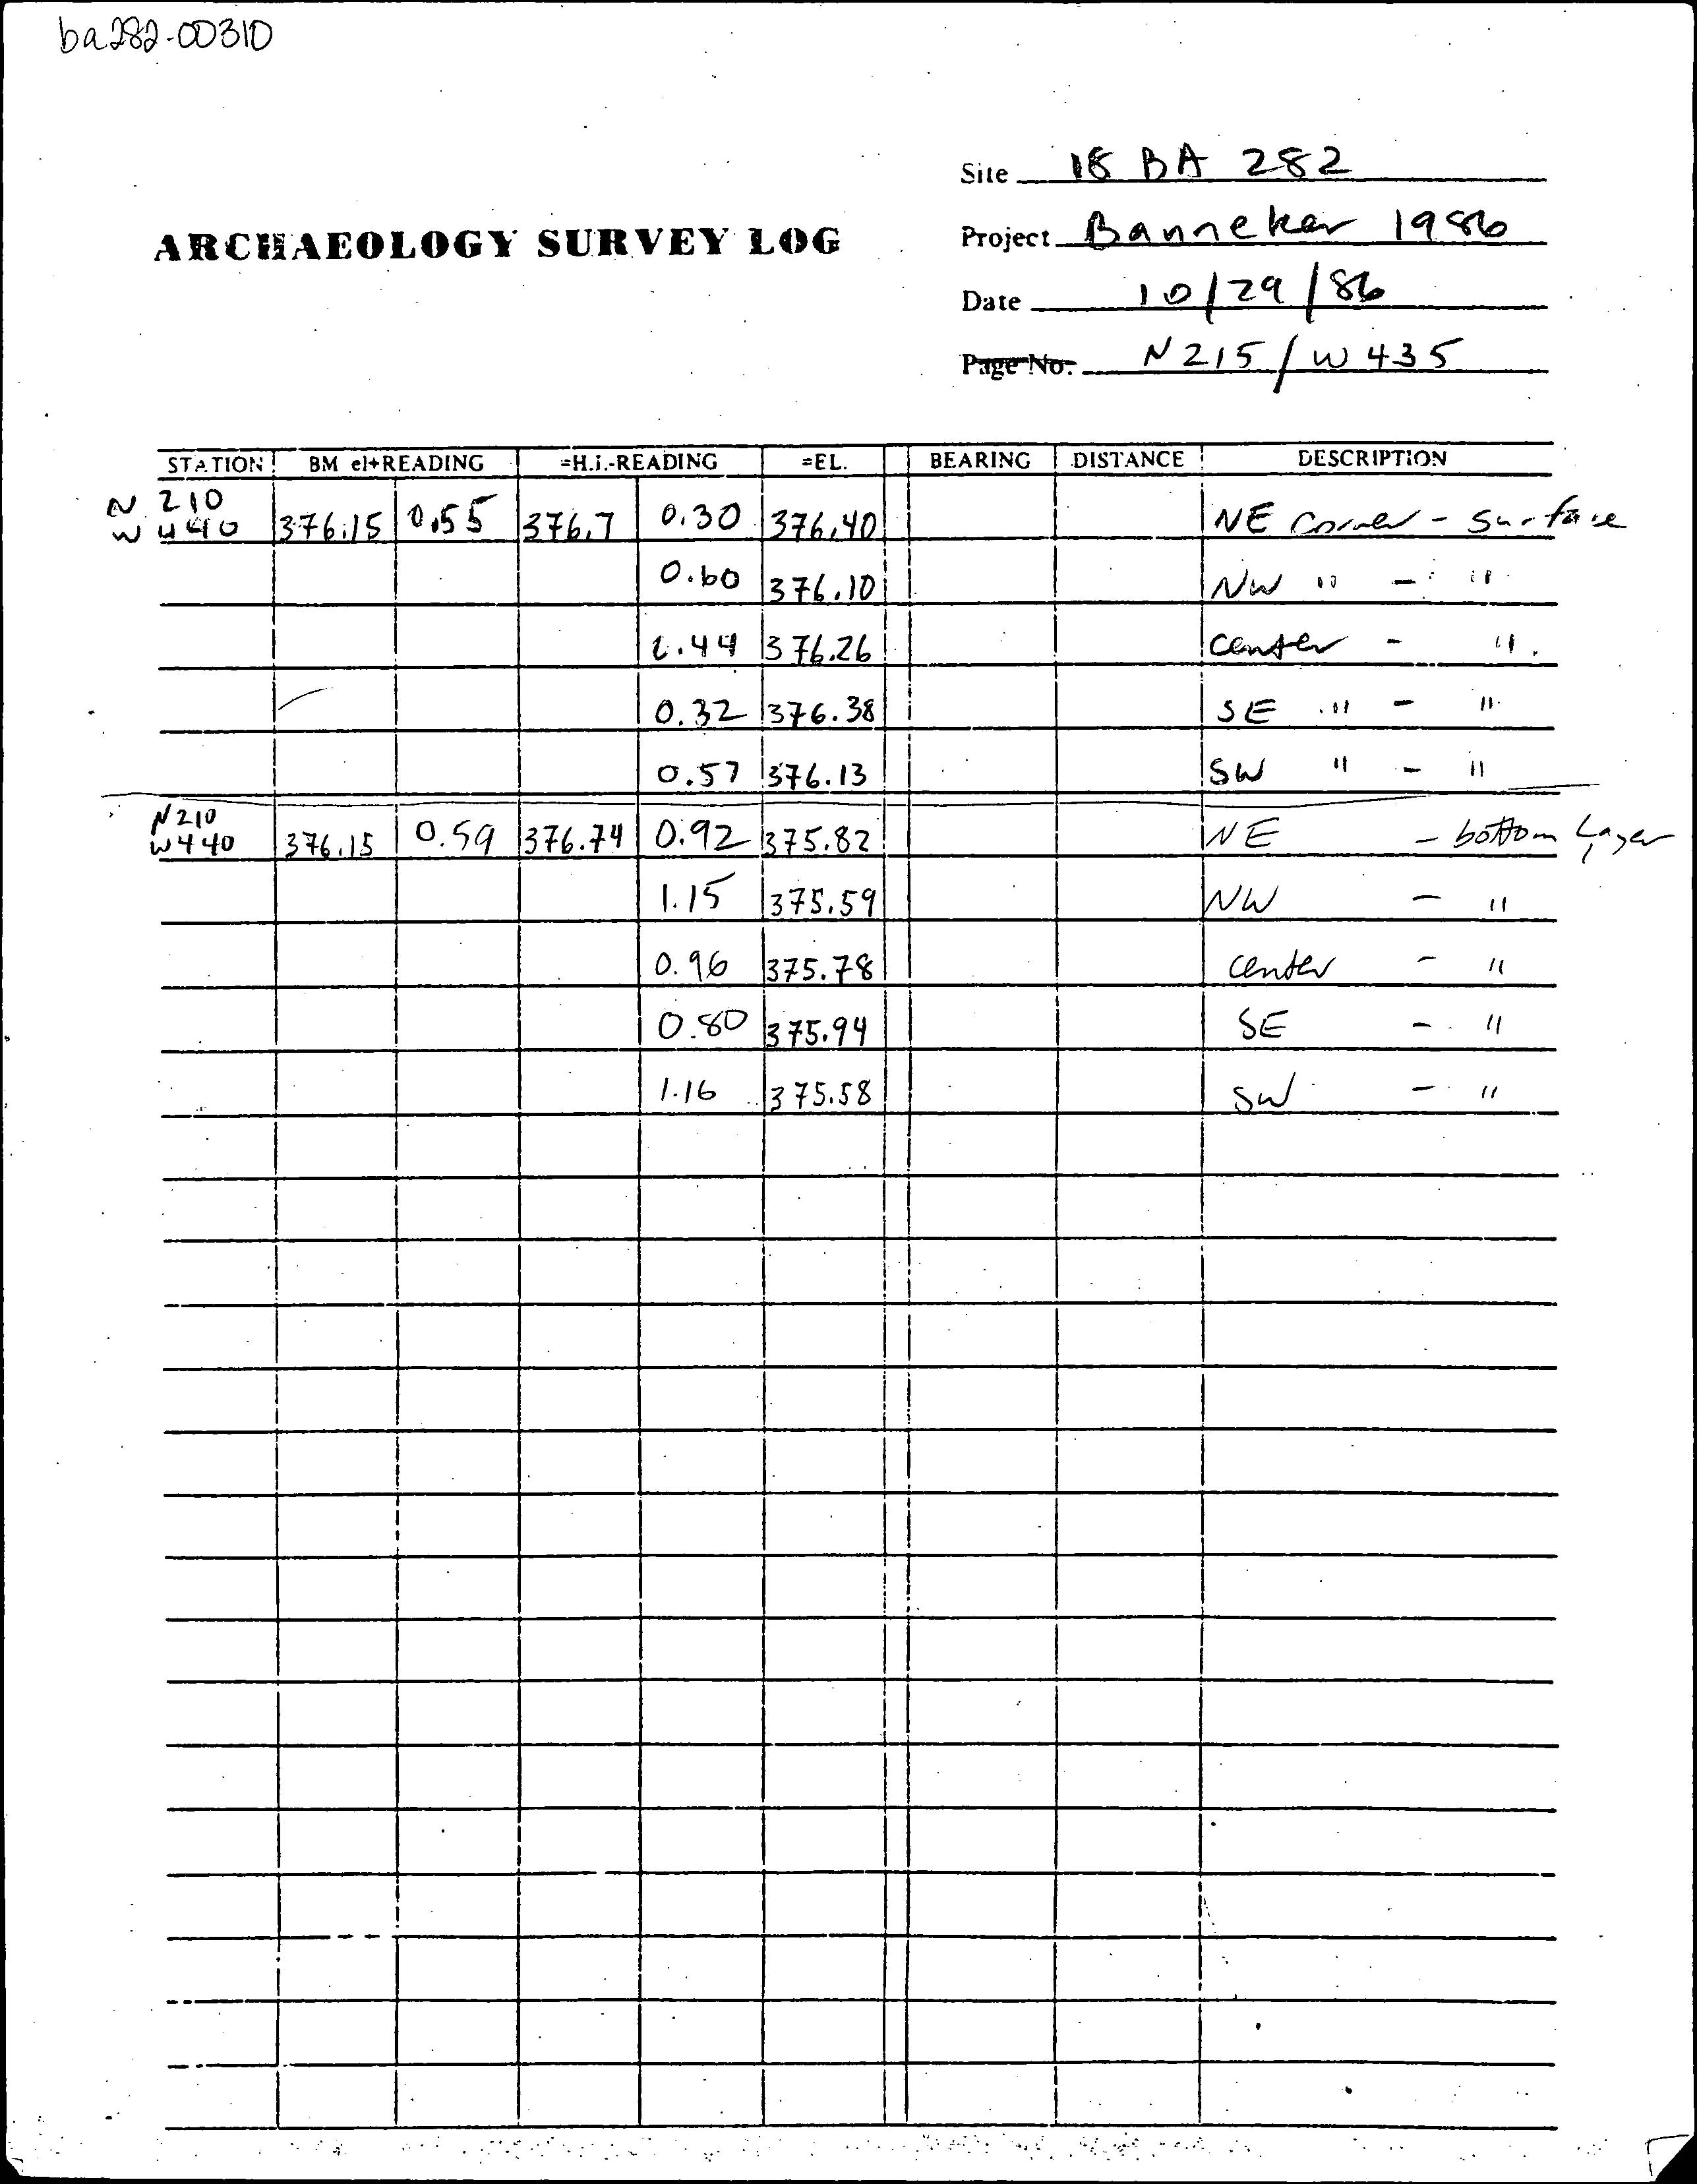 ba282-00310
Site 18 BA 282
ARCHAEOLOGY SURVEY LOG
Project Banneker 1986
Date 10/29/86
Page No. N215/W435
STATION BM el+READING =H.I.-READING =EL. BEARING DISTANCE DESCRIPTION
N 210
W 440 376.15 0.55 376.7 0.30 376.40 NE Corner - Surface
0.60 376.10 NW " - "
0.44 376.26 Center - "
0.32 376.38 SE " - "
0.57 376.13 SW " - "
N210
W440 376.15 0.59 376.74 0.92 375.82 NE - bottom Layer
1.15 375.59 NW - "
0.96 375.78 Center - "
0.80 375.94 SE - "
1.16 375.58 SW - "